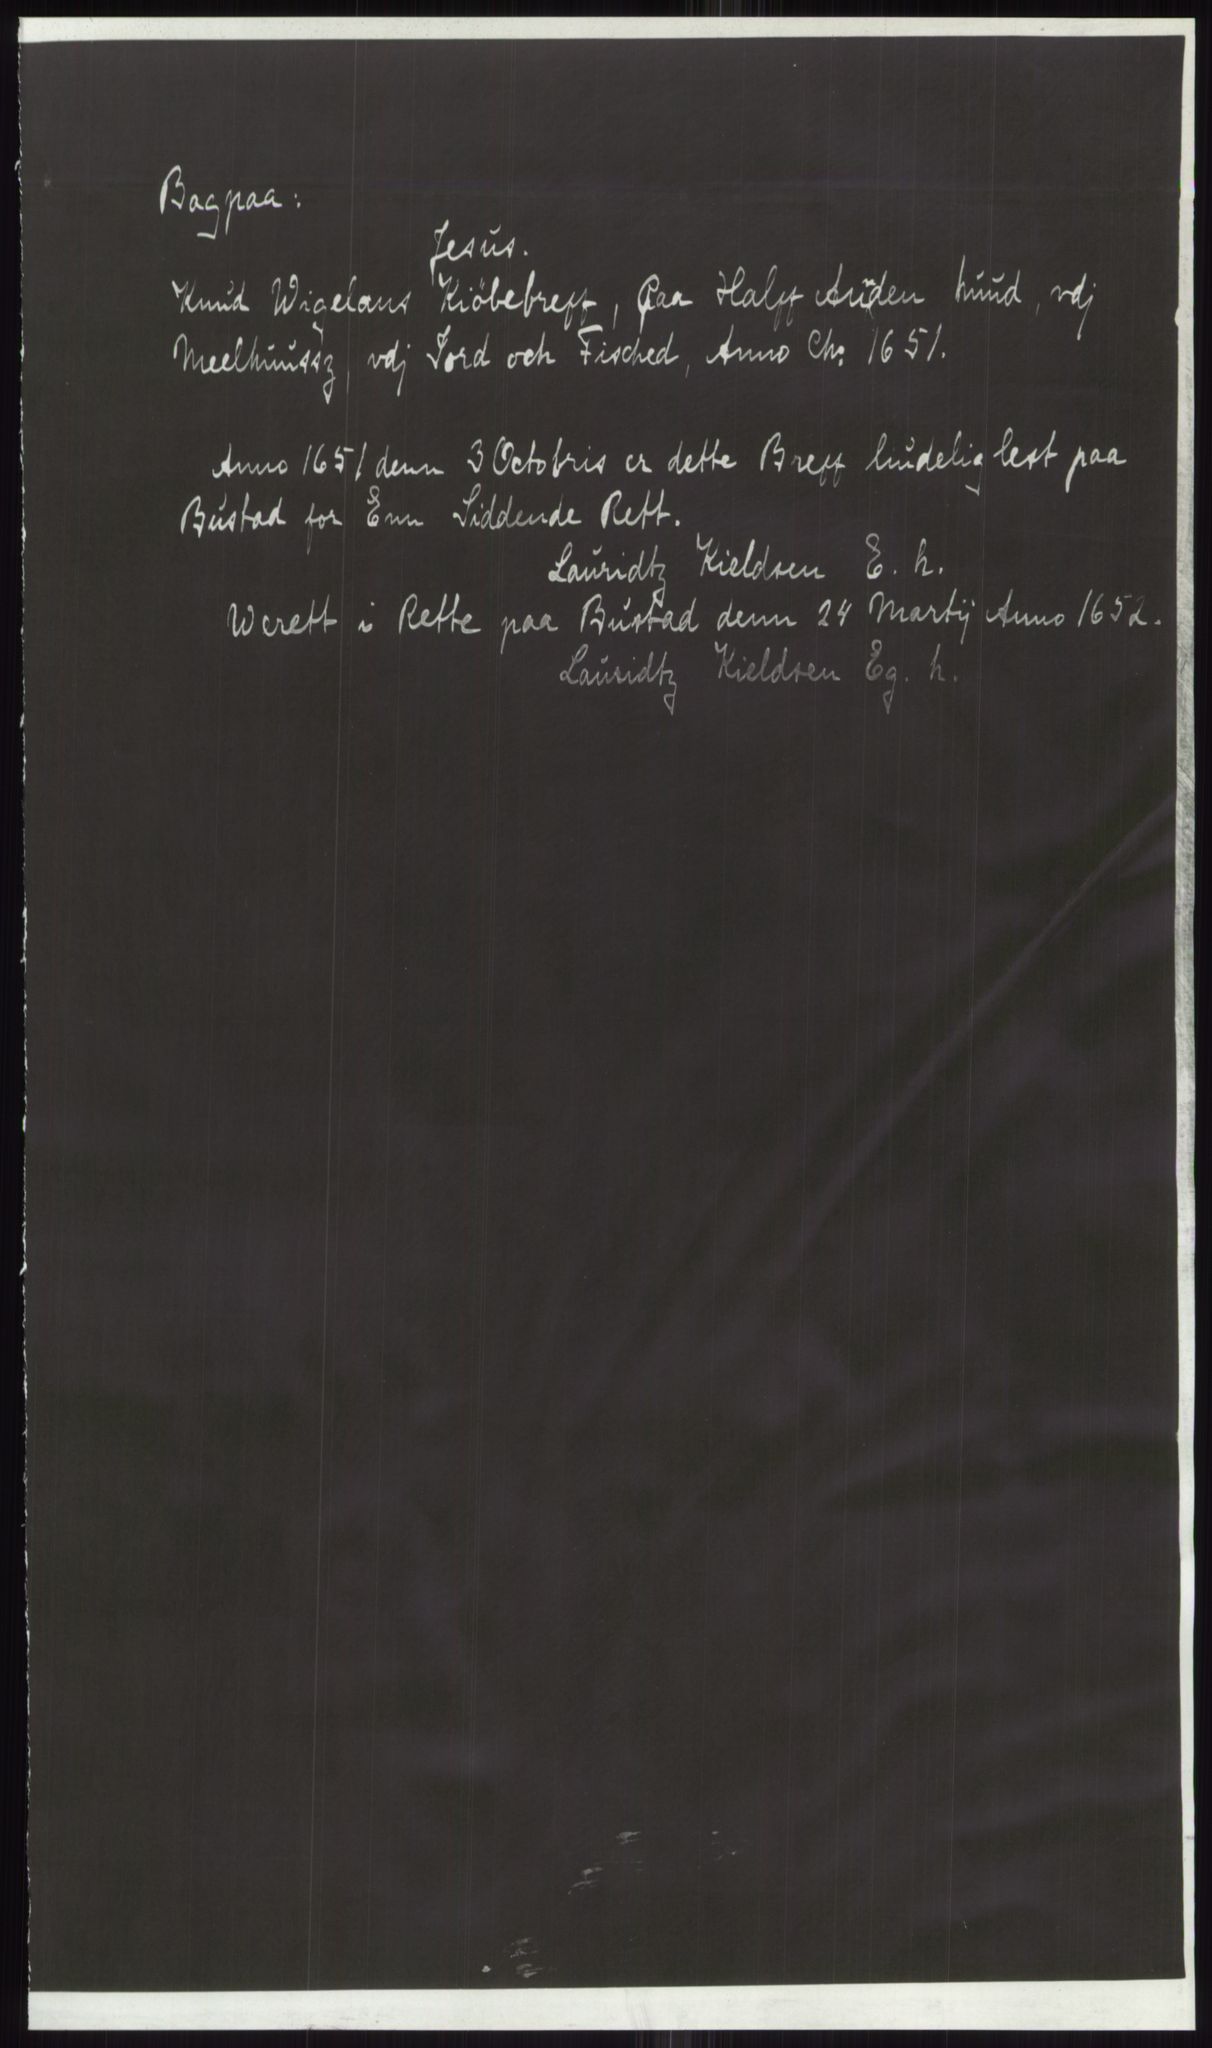 Bagpaa:
Jesus.
Knud Wigelans Kiöbebreff, Paa Halff Anden huud, vdj
Meelhuussz, vdj Jord och Fisched, Anno Ch: 1651.
Anno 1651 denn 3 Octobris er dette Breff liudelig lest paa
Bustad for Enn Siddende Rett.
Lauridtz Kieldsen E. h.
Werett i Rette paa Bustad denn 24 Martij Anno 1652.
Lauridtz Kieldsen Eg. h.